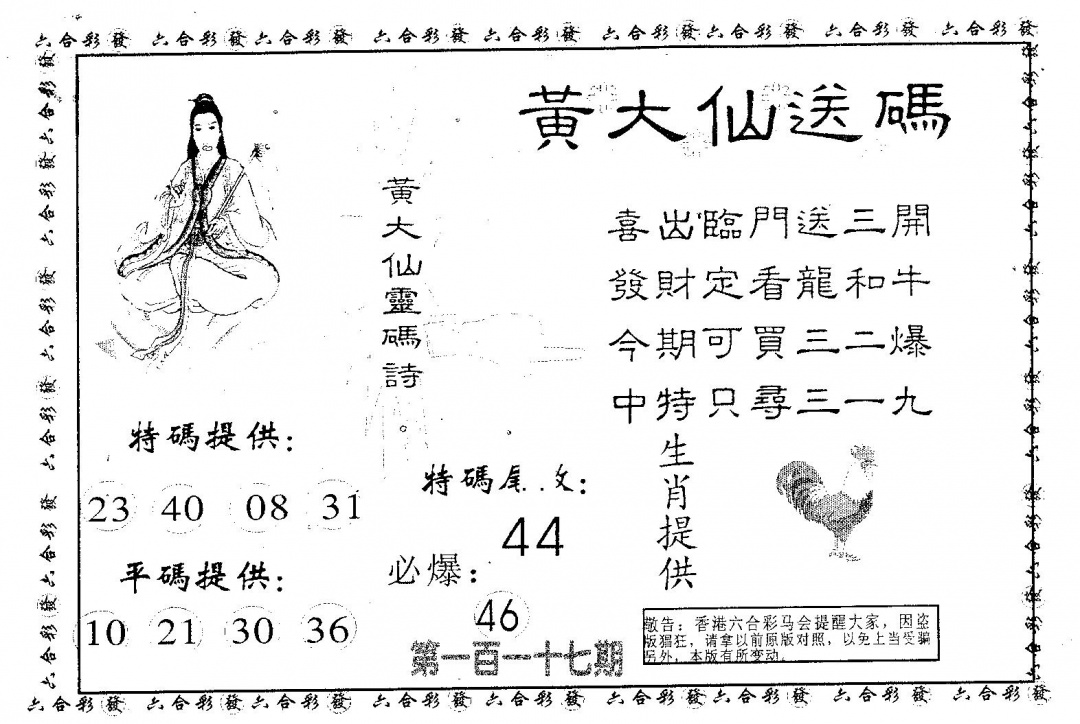 六合彩發 六合彩發 六合彩發 六合彩發 六合彩發 六合彩發 六合彩發 六合彩發 六合彩發
黃大仙送碼
黃大仙靈碼詩
喜出臨門送三開
發財定看龍和牛
今期可買三二爆
中特只尋三一九
特碼提供：
23 40 08 31
平碼提供：
10 21 30 36
特碼尾
44
必爆：
46
生肖提供
第一百一十七期
敬告：香港六合彩马会提醒大家，因盗
版猖狂，请拿以前原版对照，以免上当受骗
另外，本版有所变动.
六合彩發 六合彩發 六合彩發 六合彩發 六合彩發 六合彩發 六合彩發 六合彩發 六合彩發